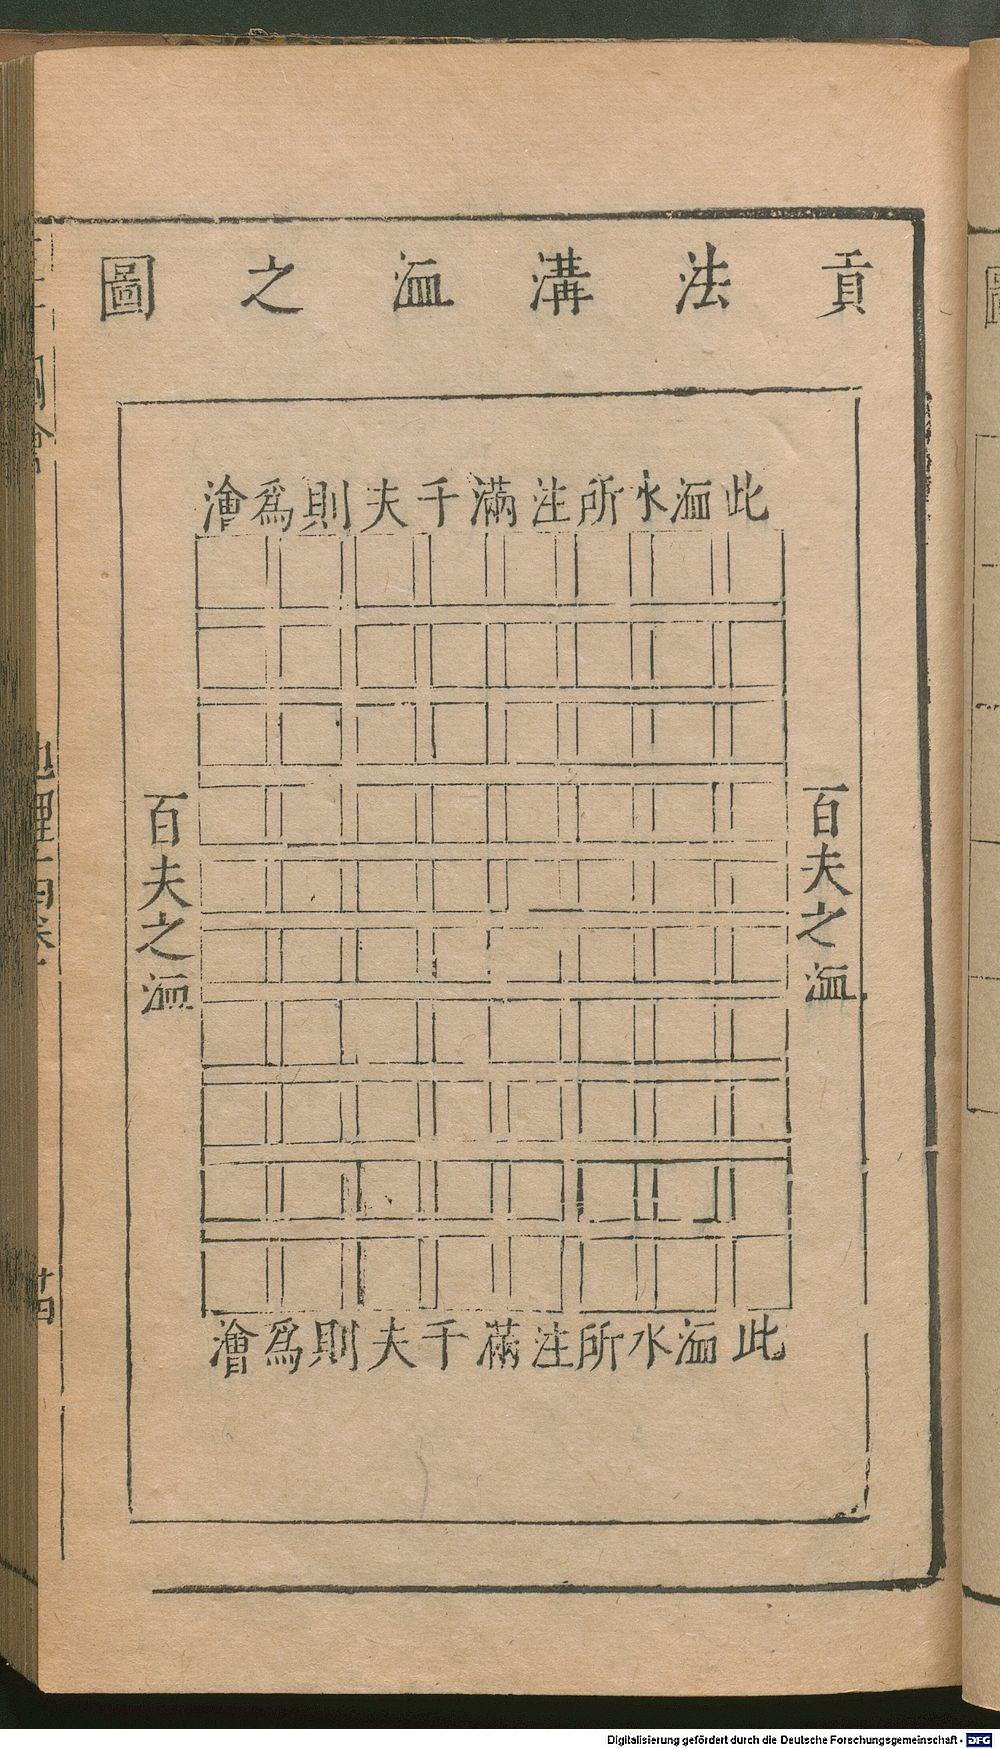 貢法溝洫之圖
此洫水所注滿千夫則爲澮
百夫之洫
百夫之洫
此洫水所注滿千夫則爲澮
地理
Digitalisierung gefördert durch die Deutsche Forschungsgemeinschaft - DFG